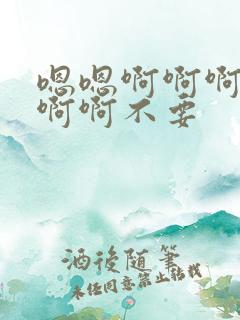 嗯嗯啊啊啊
啊啊不要
酒後随筆
未经同意禁止转载